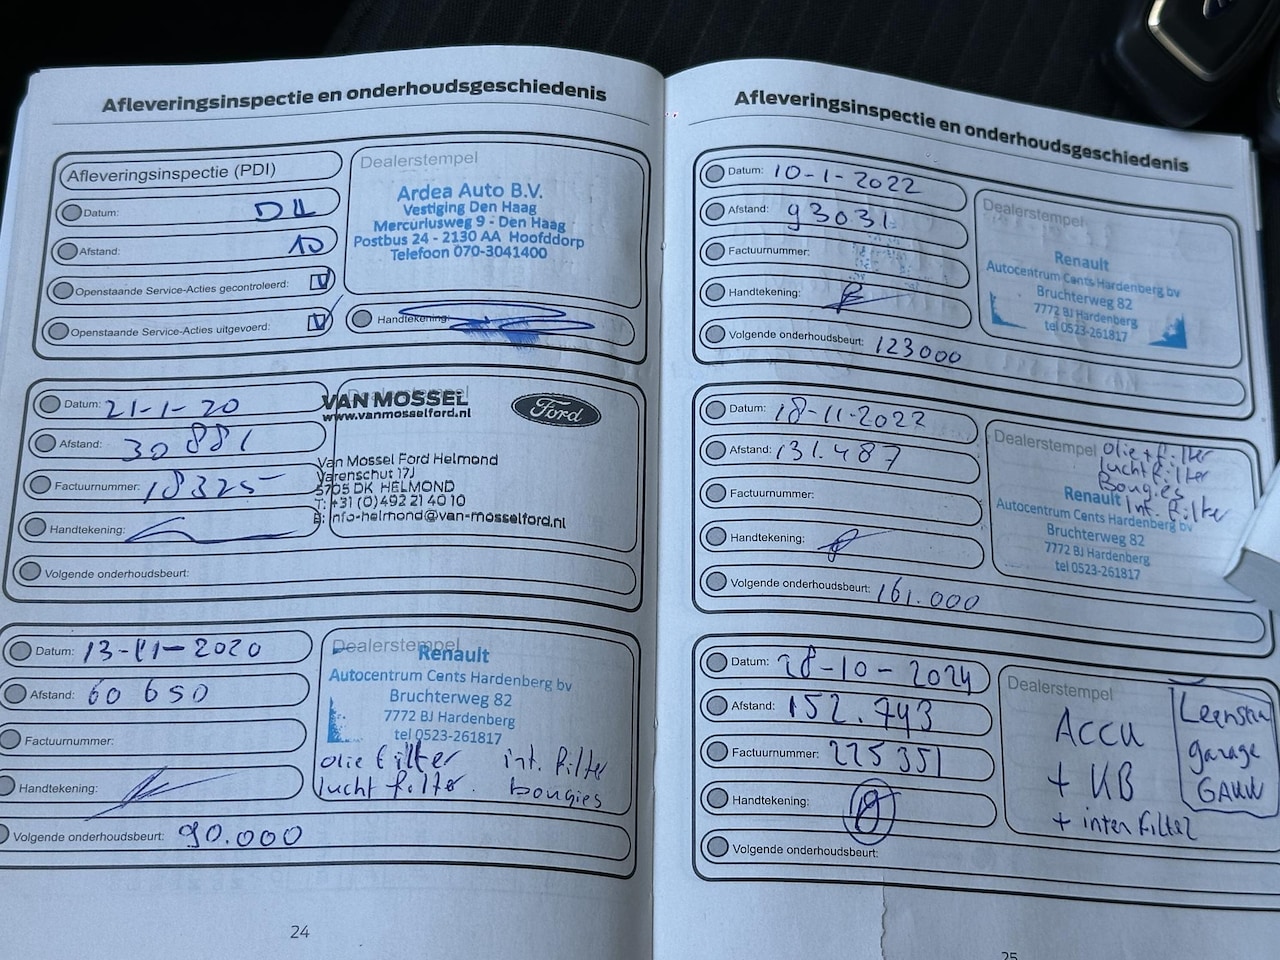 Afleveringsinspectie en onderhoudsgeschiedenis
Afleveringsinspectie (PDI)
Datum:
Afstand: 10
Openstaande Service-Acties gecontroleerd:
Openstaande Service-Acties uitgevoerd:
Dealerstempel
Ardea Auto B.V.
Vestiging Den Haag
Mercuriusweg 9 - Den Haag
Postbus 24 - 2130 AA Hoofddorp
Telefoon 070-3041400
Handtekening:
Datum: 21-1-20
Afstand: 30881
Factuurnummer: 18325
Handtekening:
Volgende onderhoudsbeurt:
Dealerstempel
VAN MOSSEL
www.vanmosselford.nl
Ford
Van Mossel Ford Helmond
Varenschut 17J
5705 DK HELMOND
T: +31 (0)492 21 40 10
E: info-helmond@van-mosselford.nl
Datum: 13-11-2020
Afstand: 60 650
Factuurnummer:
Handtekening:
Volgende onderhoudsbeurt: 90.000
Dealerstempel
Renault
Autocentrum Cents Hardenberg bv
Bruchterweg 82
7772 BJ Hardenberg
tel 0523-261817
olie filter int. filter
lucht filter. bougies
24
Afleveringsinspectie en onderhoudsgeschiedenis
Datum: 10-1-2022
Afstand: 93031
Factuurnummer:
Handtekening:
Volgende onderhoudsbeurt: 123000
Dealerstempel
Renault
Autocentrum Cents Hardenberg bv
Bruchterweg 82
7772 BJ Hardenberg
tel 0523-261817
Datum: 18-11-2022
Afstand: 131.487
Factuurnummer:
Handtekening:
Volgende onderhoudsbeurt: 161.000
Dealerstempel
olie + filter
lucht filter
Bougies
Int. filter
Renault
Autocentrum Cents Hardenberg bv
Bruchterweg 82
7772 BJ Hardenberg
tel 0523-261817
Datum: 28-10-2024
Afstand: 152.743
Factuurnummer: 225351
Handtekening:
Volgende onderhoudsbeurt:
Dealerstempel
Accu
+ KB
+ inter filter
garage
25